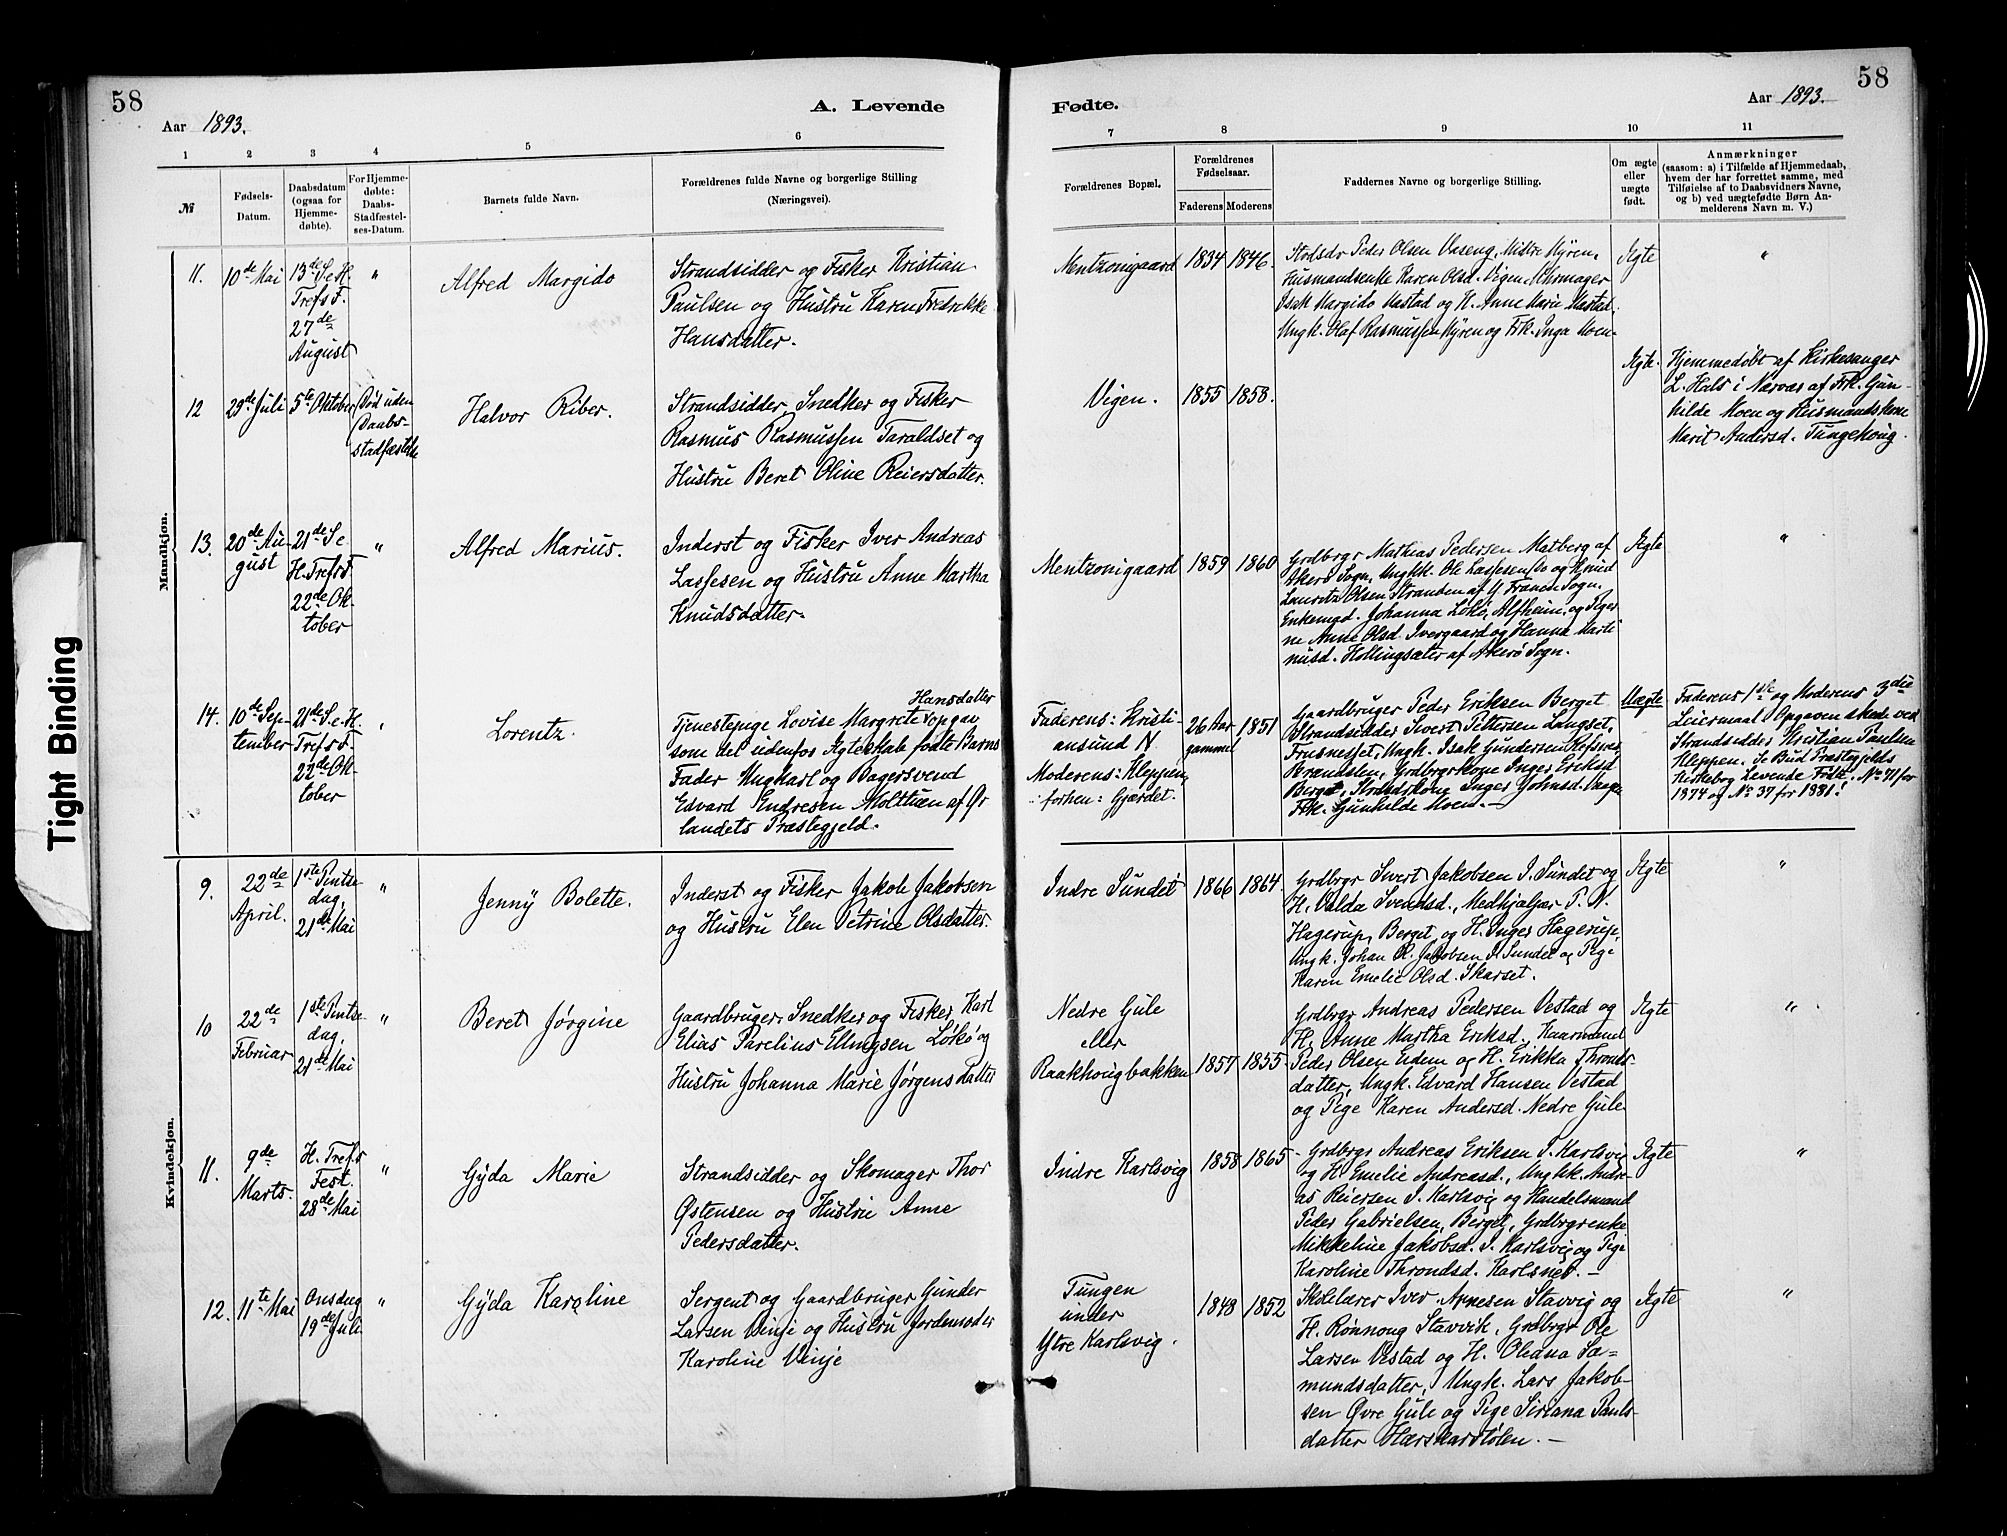 58
Aar 1893.
A. Levende
Fødte.
Aar 1893.
58
1 2 3 4 5 6 7 8 9 10 11
№
Fødsels-
Datum.
Daabsdatum
(ogsaa for
Hjemme-
døbte).
For Hjemme-
døbte:
Daabs-
Stadfæstel-
ses-Datum.
Barnets fulde Navn.
Forældrenes fulde Navne og borgerlige Stilling
(Næringsvei).
Forældrenes Bopæl.
Forældrenes
Fødselsaar.
Faderens Moderens
Faddernes Navne og borgerlige Stilling.
Om ægte
eller
uægte
født.
Anmærkninger
(saasom: a) i Tilfælde af Hjemmedaab,
hvem der har forrettet samme, med
Tilføielse af to Daabsvidners Navne,
og b) ved uægtefødte Børn An-
melderens Navn m. V.)
Mandkjøn.
11.
10de Mai
13de S. e. H.
Tref. F.
27de
August
"
Alfred Margido
Strandsidder og Fisker Kristian
Paulsen og Hustru Karen Fredrikke
Hansdatter.
Mentzonigaard
1834
1846.
Strdsdr Peder Olsen Vaseng, Mittre Myren,
Husmandsenke Karen Olsd. Vigen, Uhrmager
Isak Margido Mastad og H. Anne Marie Mastad,
Ungk. Olaf Rasmussen Myren og Frk. Inga Moen-
Ægte
"
12
29de Juli
5te Oktober
Død uden
Daabs-
stadfæstelse
Halvor Riber.
Strandsidder, Snedker og Fisker
Rasmus Rasmussen Taraldset og
Hustru Beret Oline Reiersdatter.
Vigen.
1855
1858.
Ægte.
Hjemmedøbt af Kirkesanger
L. Hals i Nærvær af Frk. Gun-
hilde Moen og Husmandskone
Marit Andersd. Tungehoug.
13.
20de Au-
gust
21de S. e
H. Tref. F
22de Ok-
tober
"
Alfred Marius.
Inderst og Fisker Iver Andreas
Lassesen og Hustru Anne Martha
Knudsdatter.
Mentzonigaard
1859
1860
Grdbrgr Mathias Pedersen Matberg af
Akerø Sogn, Ungkk. Ole Lassesen Do og Knud
Lauritz Olsen Stranden af Y. Frænen Sogn.
Enkemd. Johanna Løkø, Alfheim, og Piger
ne Anne Olsd. Ivergaard og Hanna Marti
nusd. Hollingsæter af Akerø Sogn.
Ægte
"
14.
10de Sep-
tember
21de S. e. H.
Tref. F.
22de Ok-
tober
"
Lorentz.
Hansdatter
Tjenestepige Lovise Margrete opgav
som det udenfor Ægteskab fødte Barns
Fader Ungkarl og Bagersvend
Edvard Endresen Molttuen af Ør
landets Præstegjeld.
Faderens: Kristi-
ansund N.
Moderens: Kleppen,
forhen: Gjærdet.
26 Aar
gammel
1851
Gaardbruger Peder Eriksen Berget
Strandsidder Sivert Pettersen Langset,
Frusnesset, Ungk. Isak Gundersen Refsnes
Brandslen, Grdbrgrkone Inger Eriksd
Berget, Strdsdrkone Inger Johnsd. Vaagø
Frk. Gunhilde Moen. —
Uægte
Faderens 1ste og Moderens 3die
Leiermaal! Opgaven skede ved
Strandsidder Kristian Paulsen
Kleppen. Se Bud Præstegjelds
Kirkebog Levende Fødte. No 71 for
1874 og No 37 for 1881!
Kvindekjøn.
9.
22de
April.
1ste Pintse-
dag,
21de Mai
"
Jenny Bolette.
Inderst og Fisker Jakob Jakobsen
og Hustru Elen Petrine Olsdatter.
Indre Sundet
1866
1864
Grdbrgr Sivert Jakobsen I. Sundet og
H. Valda Svendsd., Medhjælper P. N.
Hagerup, Berget, og H. Inger Hagerup,
Ungk. Johan Ol. Jakobsen I. Sundet og Pige
Karen Emelie Olsd. Skarset.
Ægte
"
10
22de
Februar
1ste Pintse-
dag,
21de Mai
"
Beret Jørgine
Gaardbruger, Snedker og Fisker, Karl
Elias Parelius Ellingsen Løkø og
Hustru Johanna Marie Jørgensdatter
Nedre Gule
eller
Raakhougbakken
1857
1855-
Grdbrgr Andreas Pedersen Vestad og
H. Anne Martha Eriksd. Kaarmand
Peder Olsen Eidem og H. Erikka Thronds-
datter, Ungk. Edvard Hansen Vestad
og Pige Karen Andersd. Nedre Gule
Ægte
"
11.
9de
Marts.
H. Tref.s
Fest.
28de Mai
"
Gyda Marie
Strandsidder og Skomager Thor
Østensen og Hustru Anne
Pedersdatter.
Indre Karlsvig
1858
1865
Grdbrgr Andreas Eriksen I. Karlsvig
og H. Emelie Andreasd., Ungkk. Andr-
as Reiersen I. Karlsvig og Handelsmand
Peder Gabrielsen, Berget, Grdbrgrenke
Mikkeline Jakobsd. I. Karlsvig og Pige
Karoline Throndsd. Karlsnes. —
Ægte
"
12.
11te Mai
Onsdag
19de Juli
"
Gyda Karoline
Sergent og Gaardbruger Gunder
Larsen Vinje og Hustru Jordemoder
Karoline Vinje
Tungen
under
Ytre Karlsvig.
1848
1852
Skolelærer Iver Arnesen Stavvig og
H. Rønnoug Stavvik, Grdbrgr Ole
Larsen Vestad og H. Oleana Sa-
mundsdatter, Ungk. Lars Jakob-
sen Øvre Gule og Pige Siriana Pauls-
datter Harskardtølen. —
Ægte
"
Tight Binding